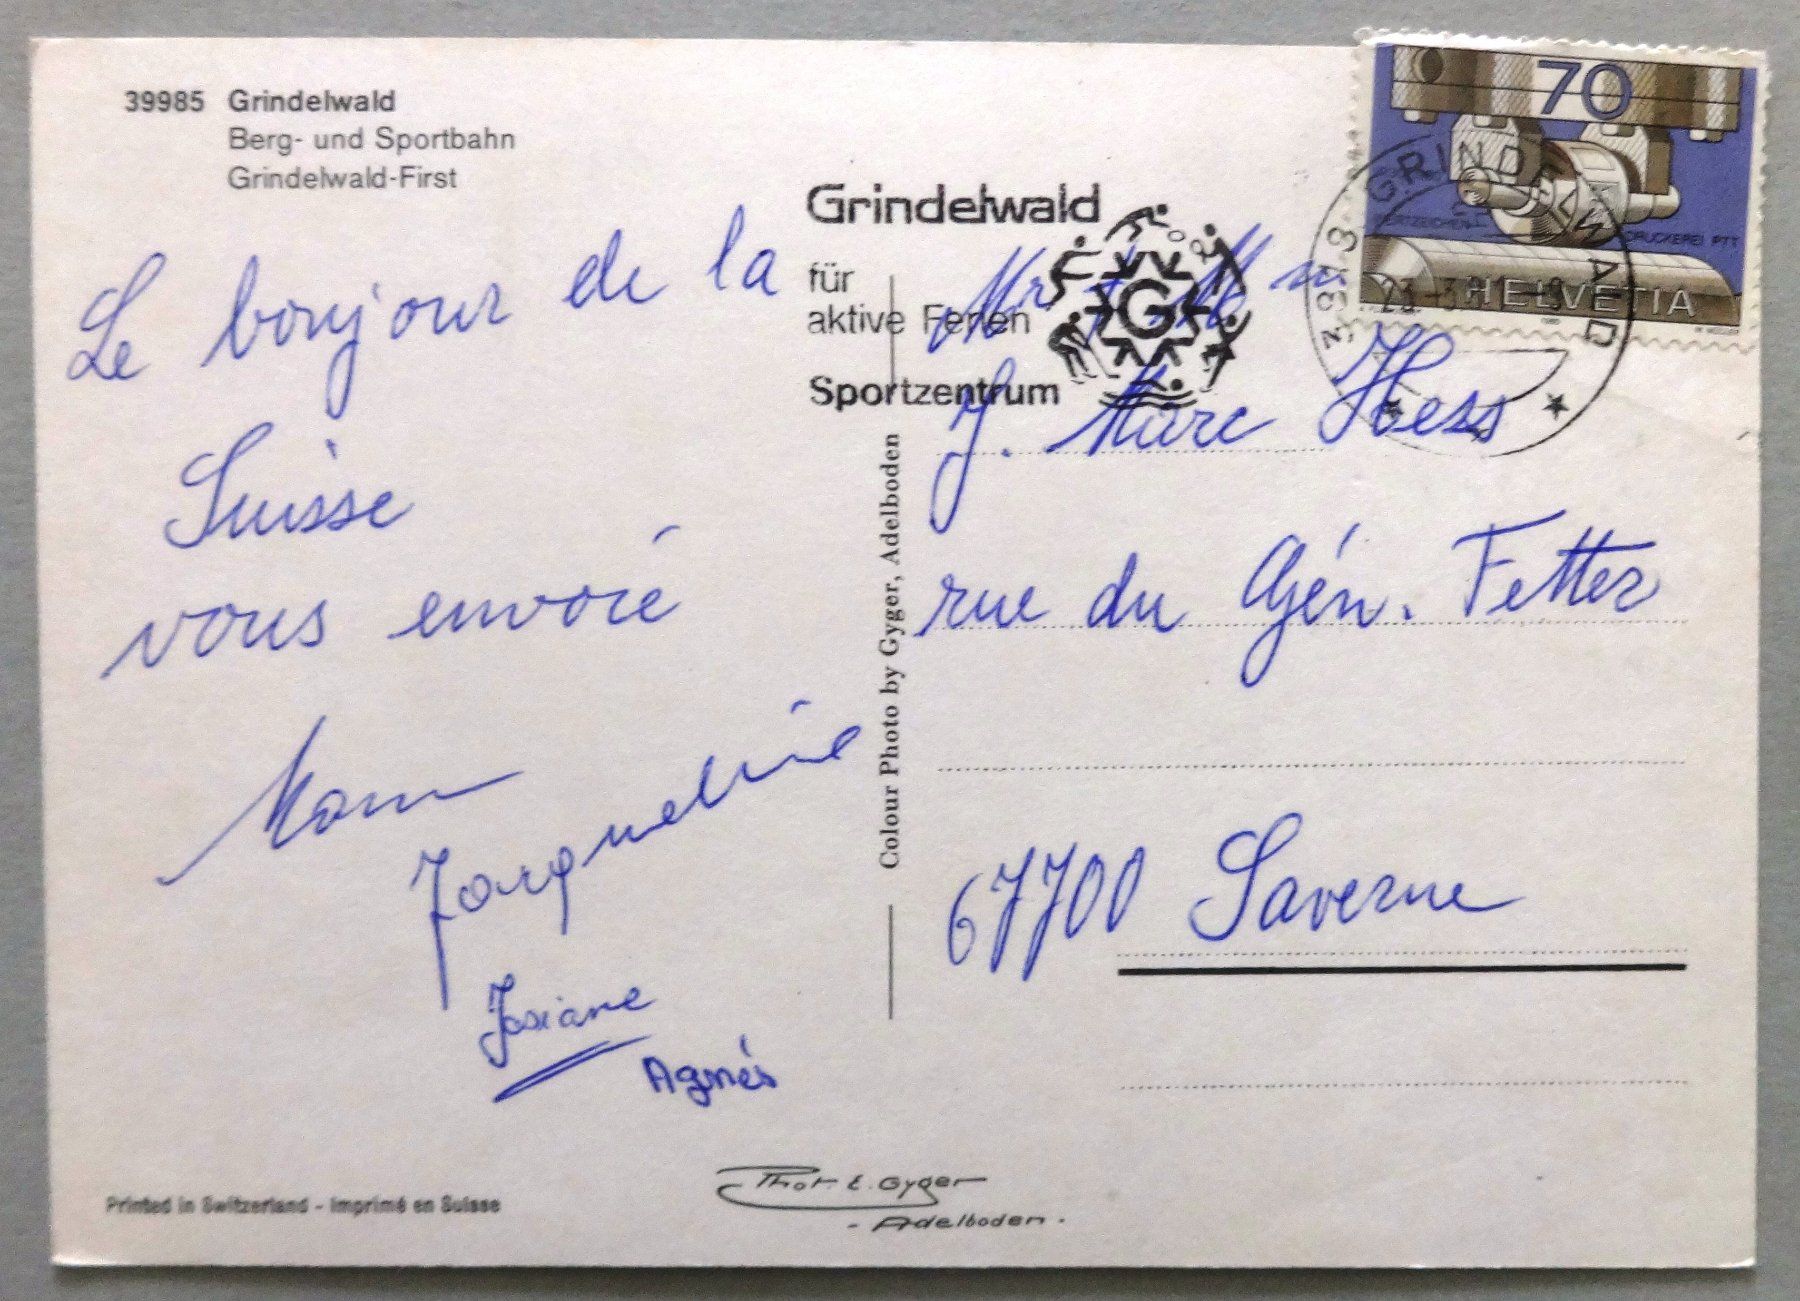 39985 Grindelwald
Berg- und Sportbahn
Grindelwald-First
Le bonjour de la
Suisse
vous envoie
Mam
Jacqueline
Josiane
Agnés
Printed in Switzerland - Imprimé en Suisse
Phot. E. Gyger
- Adelboden -
Colour Photo by Gyger, Adelboden
Grindelwald
für
aktive Ferien
Sportzentrum
G
70
WERTZEICHENDRUCKEREI PTT
HELVETIA
3818 GRINDELWALD
23
Mr + Mm
J. Marc Hess
rue du Gén. Fetter
67700 Saverne